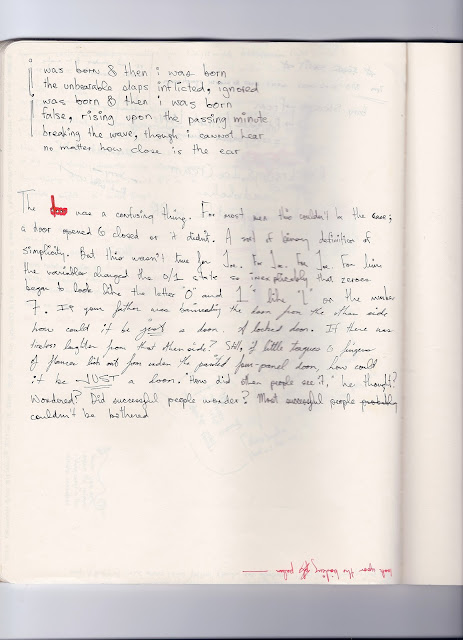 i was born & then i was born
the unbearable claps inflicted, ignored
i was born & then i was born
false, rising upon the passing minute
breaking the wave, though i cannot hear
no matter how close is the ear
The was a confusing thing. For most men this couldn't be the case;
a door opened & closed or it didn't. A sort of binary definition of
simplicity. But this wasn't true for Joe. For Joe. For Joe. For him
the variables changed the 0/1 state so inexplicably that zeroes
began to look like the letter "O" and 1 like "L" or the number
7. If your father was the door from the other side
how could it be just a door. A locked door. If there was
tireless laughter from that other side? Still, if little tongues & fingers
of flames lick out from under the painted four-panel door, how could
it be JUST a door. "How did other people see it," he thought?
Wondered? Did successful people wonder? Most successful people probably
couldn't be bothered
look upon the of